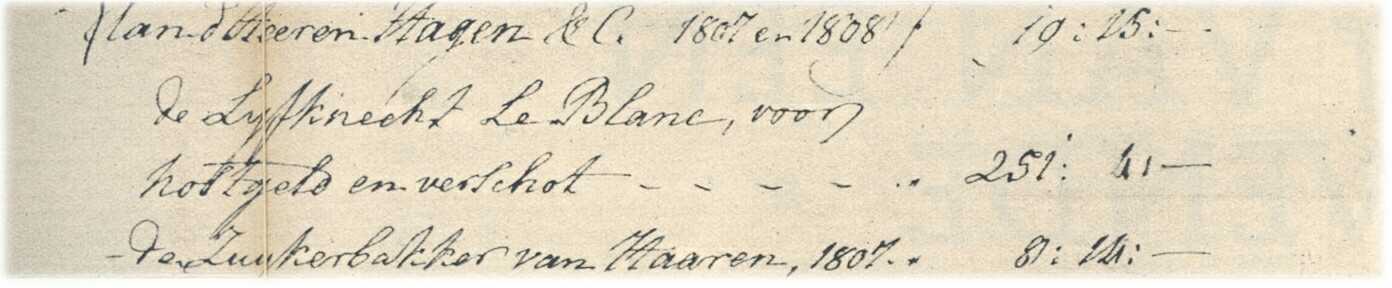 landtHeeren Hagen &C. 1807 en 1808 / 19:15:-
de Lyfknecht Le Blanc, voor
kostgeld en verschot - - - - .. 251: 4:-
de Zuykerbakker van Haaren, 1807.. 8:14:-